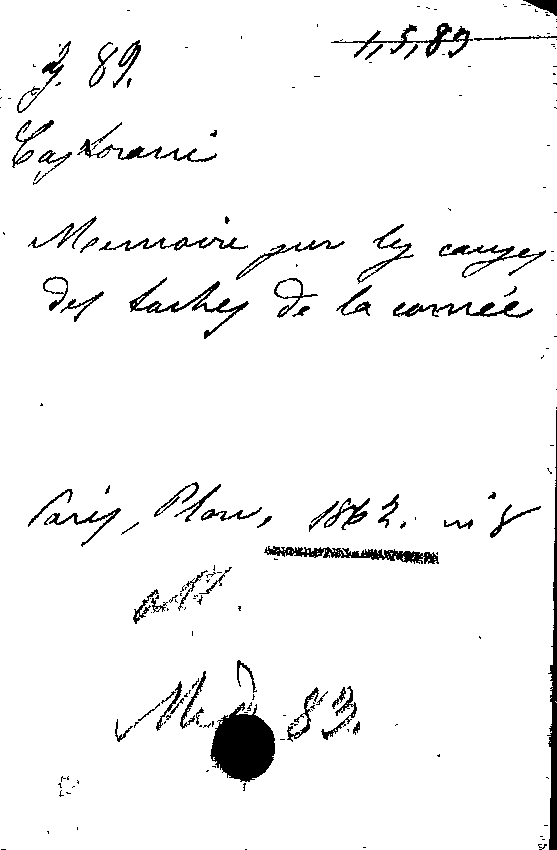 1,5,89
J. 89.
Castorani
Memoire sur les causes
des taches de la cornée
Paris, Plon, 1862. in 8
Med 83.